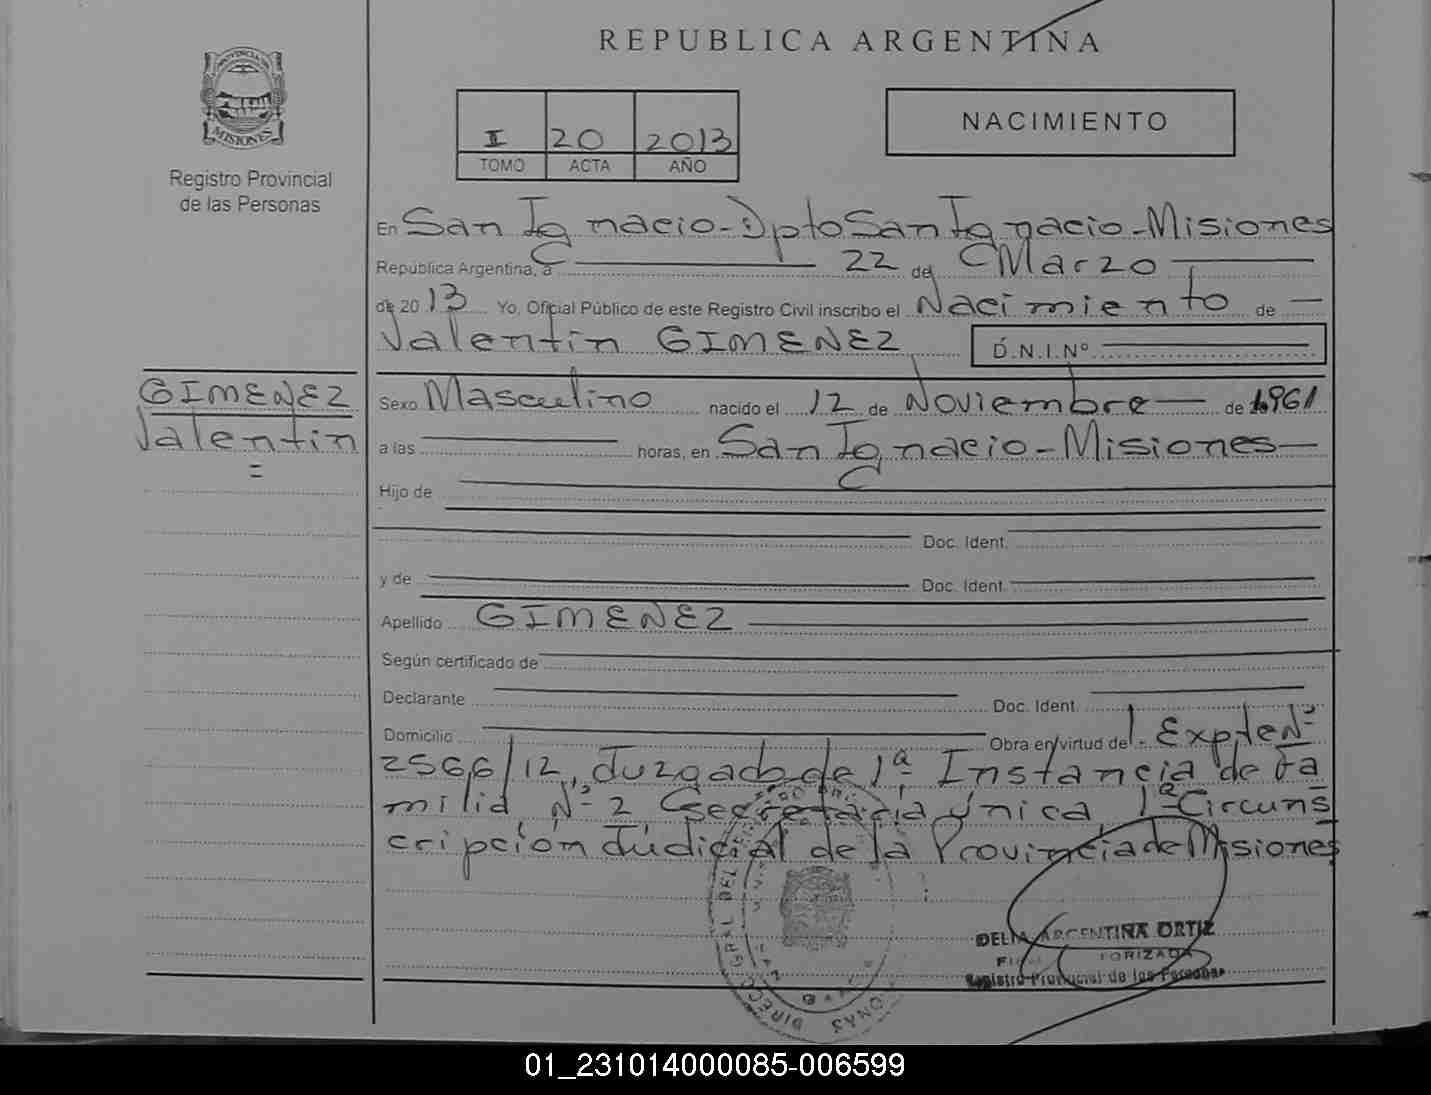 REPUBLICA ARGENTINA
MISIONES
Registro Provincial
de las Personas
I 20 2013
TOMO ACTA AÑO
NACIMIENTO
En San Ignacio - Dpto San Ignacio - Misiones
República Argentina, a 22 de Marzo
de 20 13 Yo, Oficial Público de este Registro Civil inscribo el Nacimiento de
Valentin GIMENEZ D.N.I.Nº
GIMENEZ
Valentin
Sexo Masculino nacido el 12 de Noviembre de 1.961
a las horas, en San Ignacio - Misiones
Hijo de
Doc. Ident.
y de Doc. Ident.
Apellido GIMENEZ
Según certificado de
Declarante Doc. Ident.
Domicilio Obra en virtud de Expte Nº
2566/12, Juzgado de 1ª Instancia de Fa
milia Nº 2 Secretaría Única, 1ª Circuns
cripción Judicial de la Provincia de Misiones
DELIA ARGENTINA ORTIZ
Registro Provincial de las Personas
01_231014000085-006599